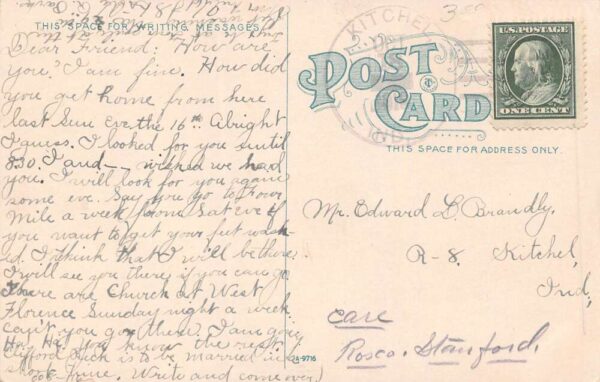 THIS SPACE FOR WRITING MESSAGES
Dear Friend: How are
you. I am fine. How did
you get home from here
last Sun eve the 16th Alright
I guess. I looked for you until
8:30. I and — wished we had
you. I will look for you again
some eve. Say you go to Four
Mile a week from Sat eve if
you want to get your feet wash-
ed. I think that I will be there
I will see you there if you can go
There are Church at West
Florence Sunday night a week
can't you go then. I am going
Ha. Ha. you know the rest.
Clifford is to be married in
June. Write and come over)
KITCHEL
IND.
300
POST CARD
U.S. POSTAGE
ONE CENT
THIS SPACE FOR ADDRESS ONLY
Mr. Edward L. Brandly,
R-8 Kitchel,
Ind,
care
Rosco. Stanford.
A-9716